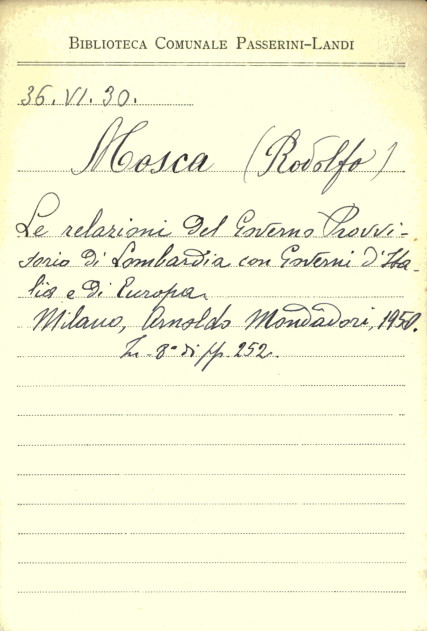 BIBLIOTECA COMUNALE PASSERINI-LANDI
36.VI.30.
Mosca (Rodolfo)
Le relazioni del Governo Provvi-
sorio di Lombardia con Governi d'Ita-
lia e di Europa.
Milano, Arnoldo Mondadori, 1950.
In-8° di pp. 252.